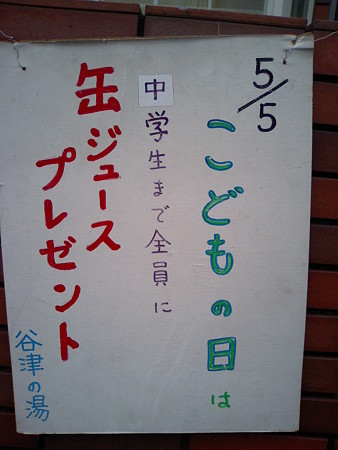 5/5
こどもの日は
中学生まで全員に
缶ジュース
プレゼント
谷津の湯